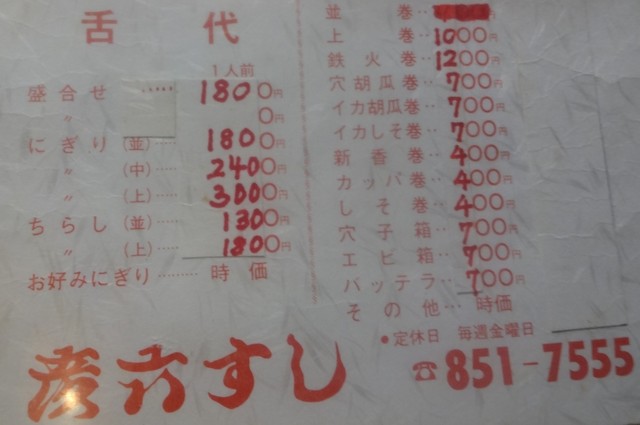 舌代
1人前
盛合せ‥‥‥1800円
〃 0円
にぎり(並)‥‥‥1800円
〃 (中)‥‥‥2400円
〃 (上)‥‥‥3000円
ちらし(並)‥‥‥1300円
〃 (上)‥‥‥1800円
お好みにぎり‥‥‥時価
並巻‥
上巻‥1000円
鉄火巻‥1200円
穴胡瓜巻‥700円
イカ胡瓜巻‥700円
イカしそ巻‥700円
新香巻‥400円
カッパ巻‥400円
しそ巻‥400円
穴子箱‥700円
エビ箱‥700円
バッテラ‥700円
その他‥時価
●定休日 毎週金曜日
☎851-7555
六すし